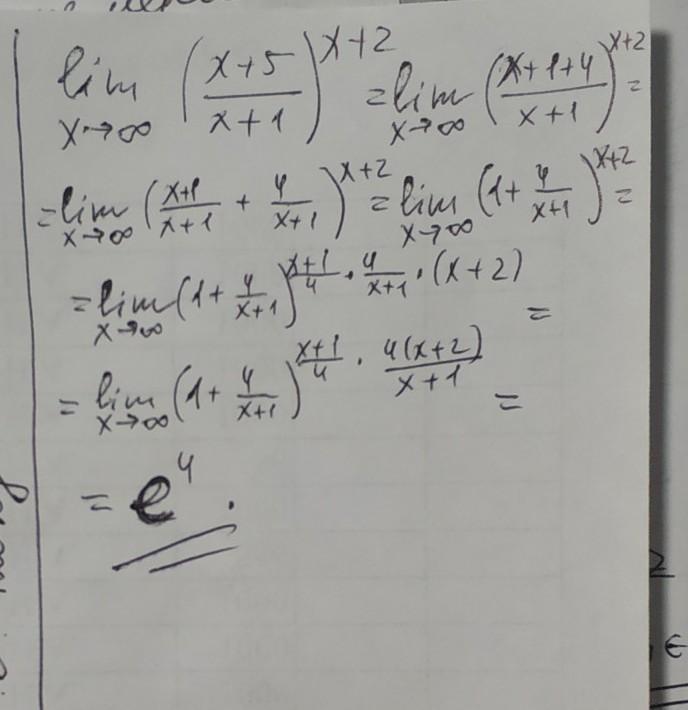 lim x→∞ ((x+5)/(x+1))^(x+2) = lim x→∞ ((x+1+4)/(x+1))^(x+2) =
= lim x→∞ ((x+1)/(x+1) + 4/(x+1))^(x+2) = lim x→∞ (1 + 4/(x+1))^(x+2) =
= lim x→∞ (1 + 4/(x+1))^((x+1)/4 · 4/(x+1) · (x+2)) =
= lim x→∞ (1 + 4/(x+1))^((x+1)/4 · 4(x+2)/(x+1)) =
= e^4 .
2
, ∈